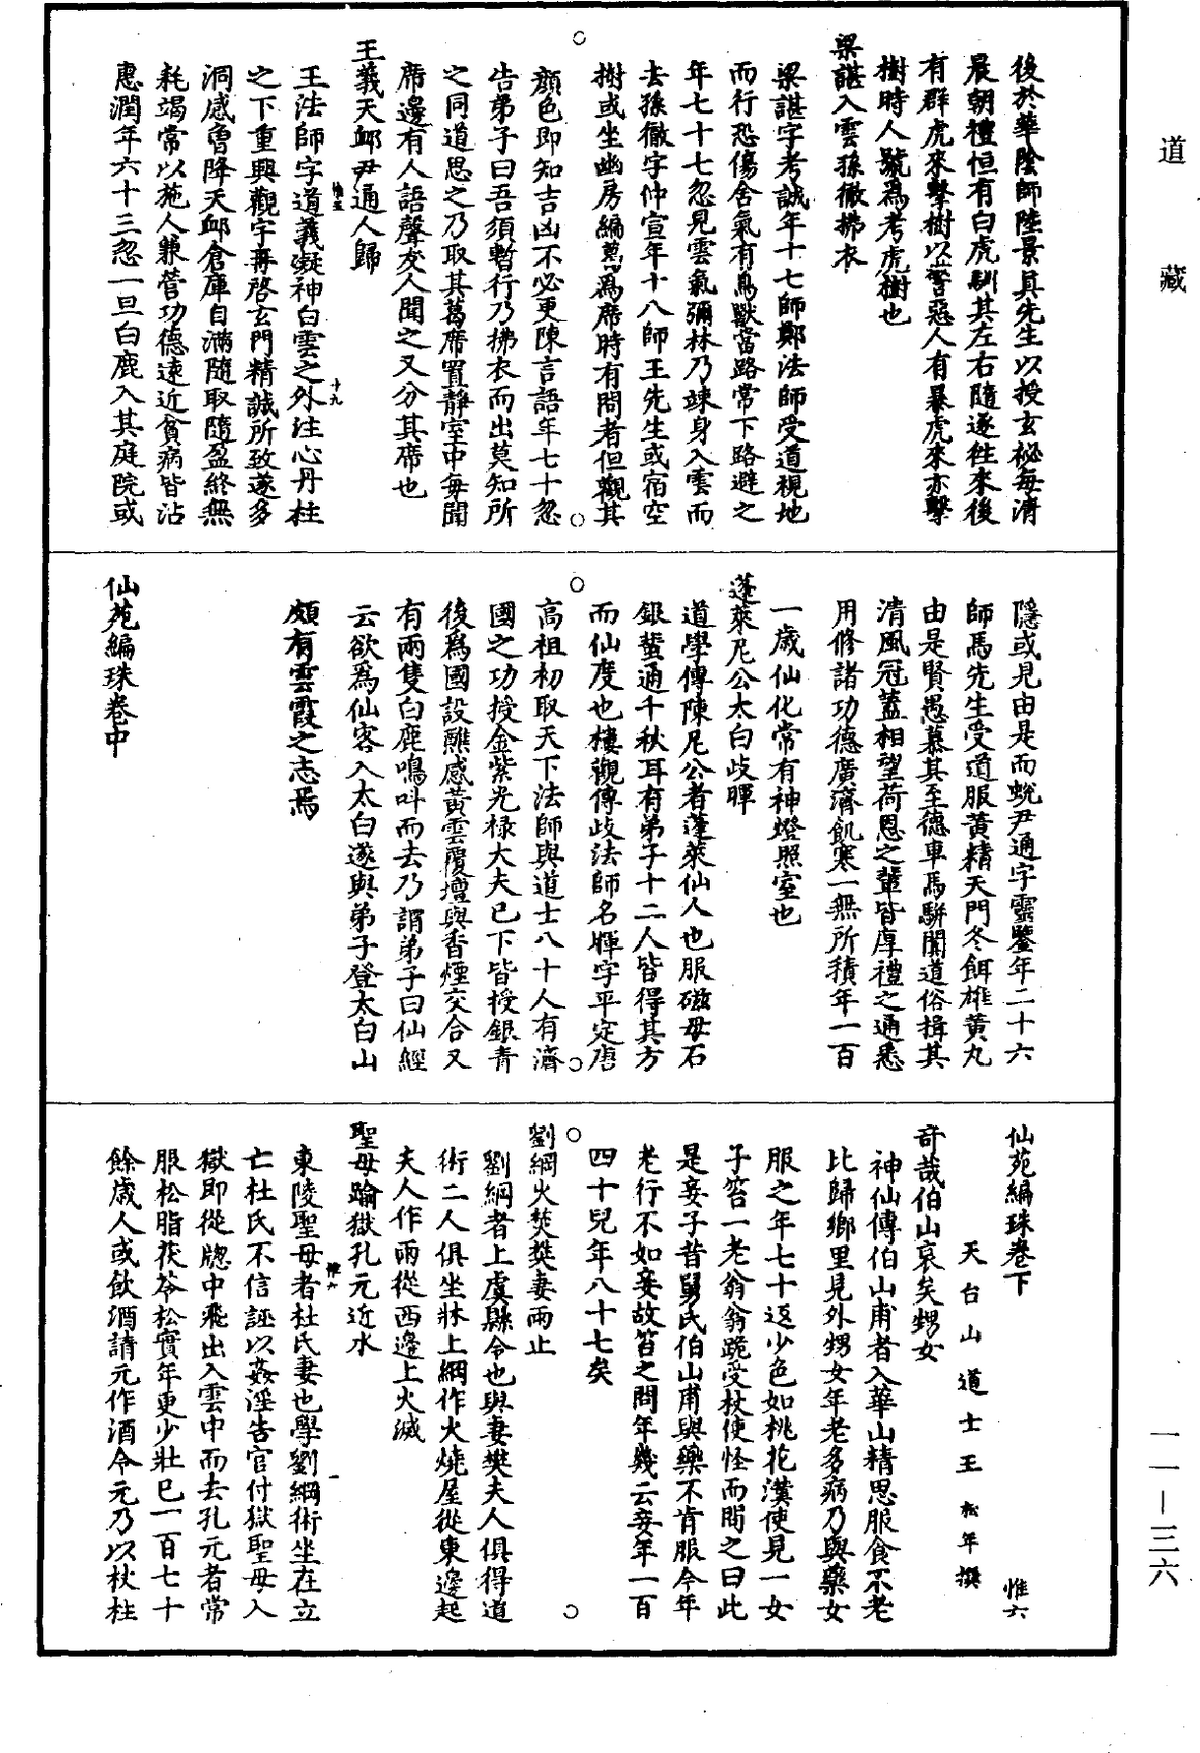 道藏
後於華陰師陸景真先生以授玄祕每清
晨朝禮恒有白虎馴其左右隨逐往來後
有群虎來擊樹以警惡人有暴虎來亦擊
樹時人號爲考虎樹也
梁諶入雲孫徹拂衣
梁諶字考誠年十七師鄭法師受道視地
而行恐傷含氣有鳥獸當路常下路避之
年七十七忽見雲氣彌林乃竦身入雲而
去孫徹字仲宣年十八師王先生或宿空
樹或坐幽房編蔦爲席時有問者但觀其
顏色即知吉凶不必更陳言語年七十忽
告弟子曰吾須暫行乃拂衣而出莫知所
之同道思之乃取其葛席置靜室中每聞
席邊有人語聲友人聞之又分其席也
王義天邮尹通人歸
王法師字道義凝神白雲之外注心丹柱
十九
之下重興觀宇再啓玄門精誠所致遂多
洞感曾降天邮倉庫自滿隨取隨盈終無
耗竭常以施人兼營功德遠近貧病皆沾
惠潤年六十三忽一旦白鹿入其庭院或
隱或見由是而蛻尹通字靈鑒年二十六
師馬先生受道服黃精天門冬餌雄黃丸
由是賢愚慕其至德車馬駢闐道俗揖其
清風冠蓋相望荷恩之輩皆厚禮之通悉
用修諸功德廣濟飢寒一無所積年一百
一歲仙化常有神燈照室也
蓬萊尼公太白歧暉
道學傳陳尼公者蓬萊仙人也服磁母石
銀蜚通千秋耳有弟子十二人皆得其方
而仙度也樓觀傳歧法師名暉字平定唐
高祖初取天下法師與道士八十人有濟
國之功授金紫光祿大夫已下皆授銀青
後爲國設醮感黃雲覆壇與香煙交合又
有兩隻白鹿鳴叫而去乃謂弟子曰仙經
云欲爲仙客入太白遂與弟子登太白山
頗有雲霞之志焉
仙苑編珠卷中
仙苑編珠卷下
惟六
天台山道士王松年撰
奇哉伯山哀矣甥女
神仙傳伯山甫者入華山精思服食不老
比歸鄉里見外甥女年老多病乃與藥女
服之年七十返少色如桃花漢使見一女
子笞一老翁翁跪受杖使怪而問之曰此
是妾子昔舅氏伯山甫與藥不肯服今年
老行不如妾故笞之問年幾云妾年一百
四十兒年八十七矣
劉綱火焚樊妻雨止
劉綱者上虞縣令也與妻樊夫人俱得道
術二人俱坐牀上綱作火燒屋從東邊起
夫人作雨從西邊上火滅
聖母踰獄孔元近水
東陵聖母者杜氏妻也學劉綱術坐在立
一
亡杜氏不信誣以姦淫告官付獄聖母入
獄即從牕中飛出入雲中而去孔元者常
服松脂茯苓松實年更少壯已一百七十
餘歲人或飲酒請元作酒令元乃以杖柱
一一—三六